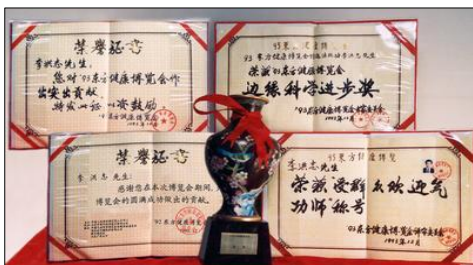 荣誉证书
李洪志先生：
您对'93东方健康博览会作
出突出贡献。
特发此证 以资鼓励。
'93东方健康博览会
1993.12
荣获'93东方健康博览会
边缘科学进步奖
'93东方健康博览会
1993年12月
荣誉证书
李洪志先生：
感谢您在本次博览会期间，
博览会的圆满成功做出的贡献。
'93东方健康博览会
'93东方健康博览
李洪志先生
荣获"受群众欢迎气
功师"称号
'93东方健康博览会评审委员会
1993年12月